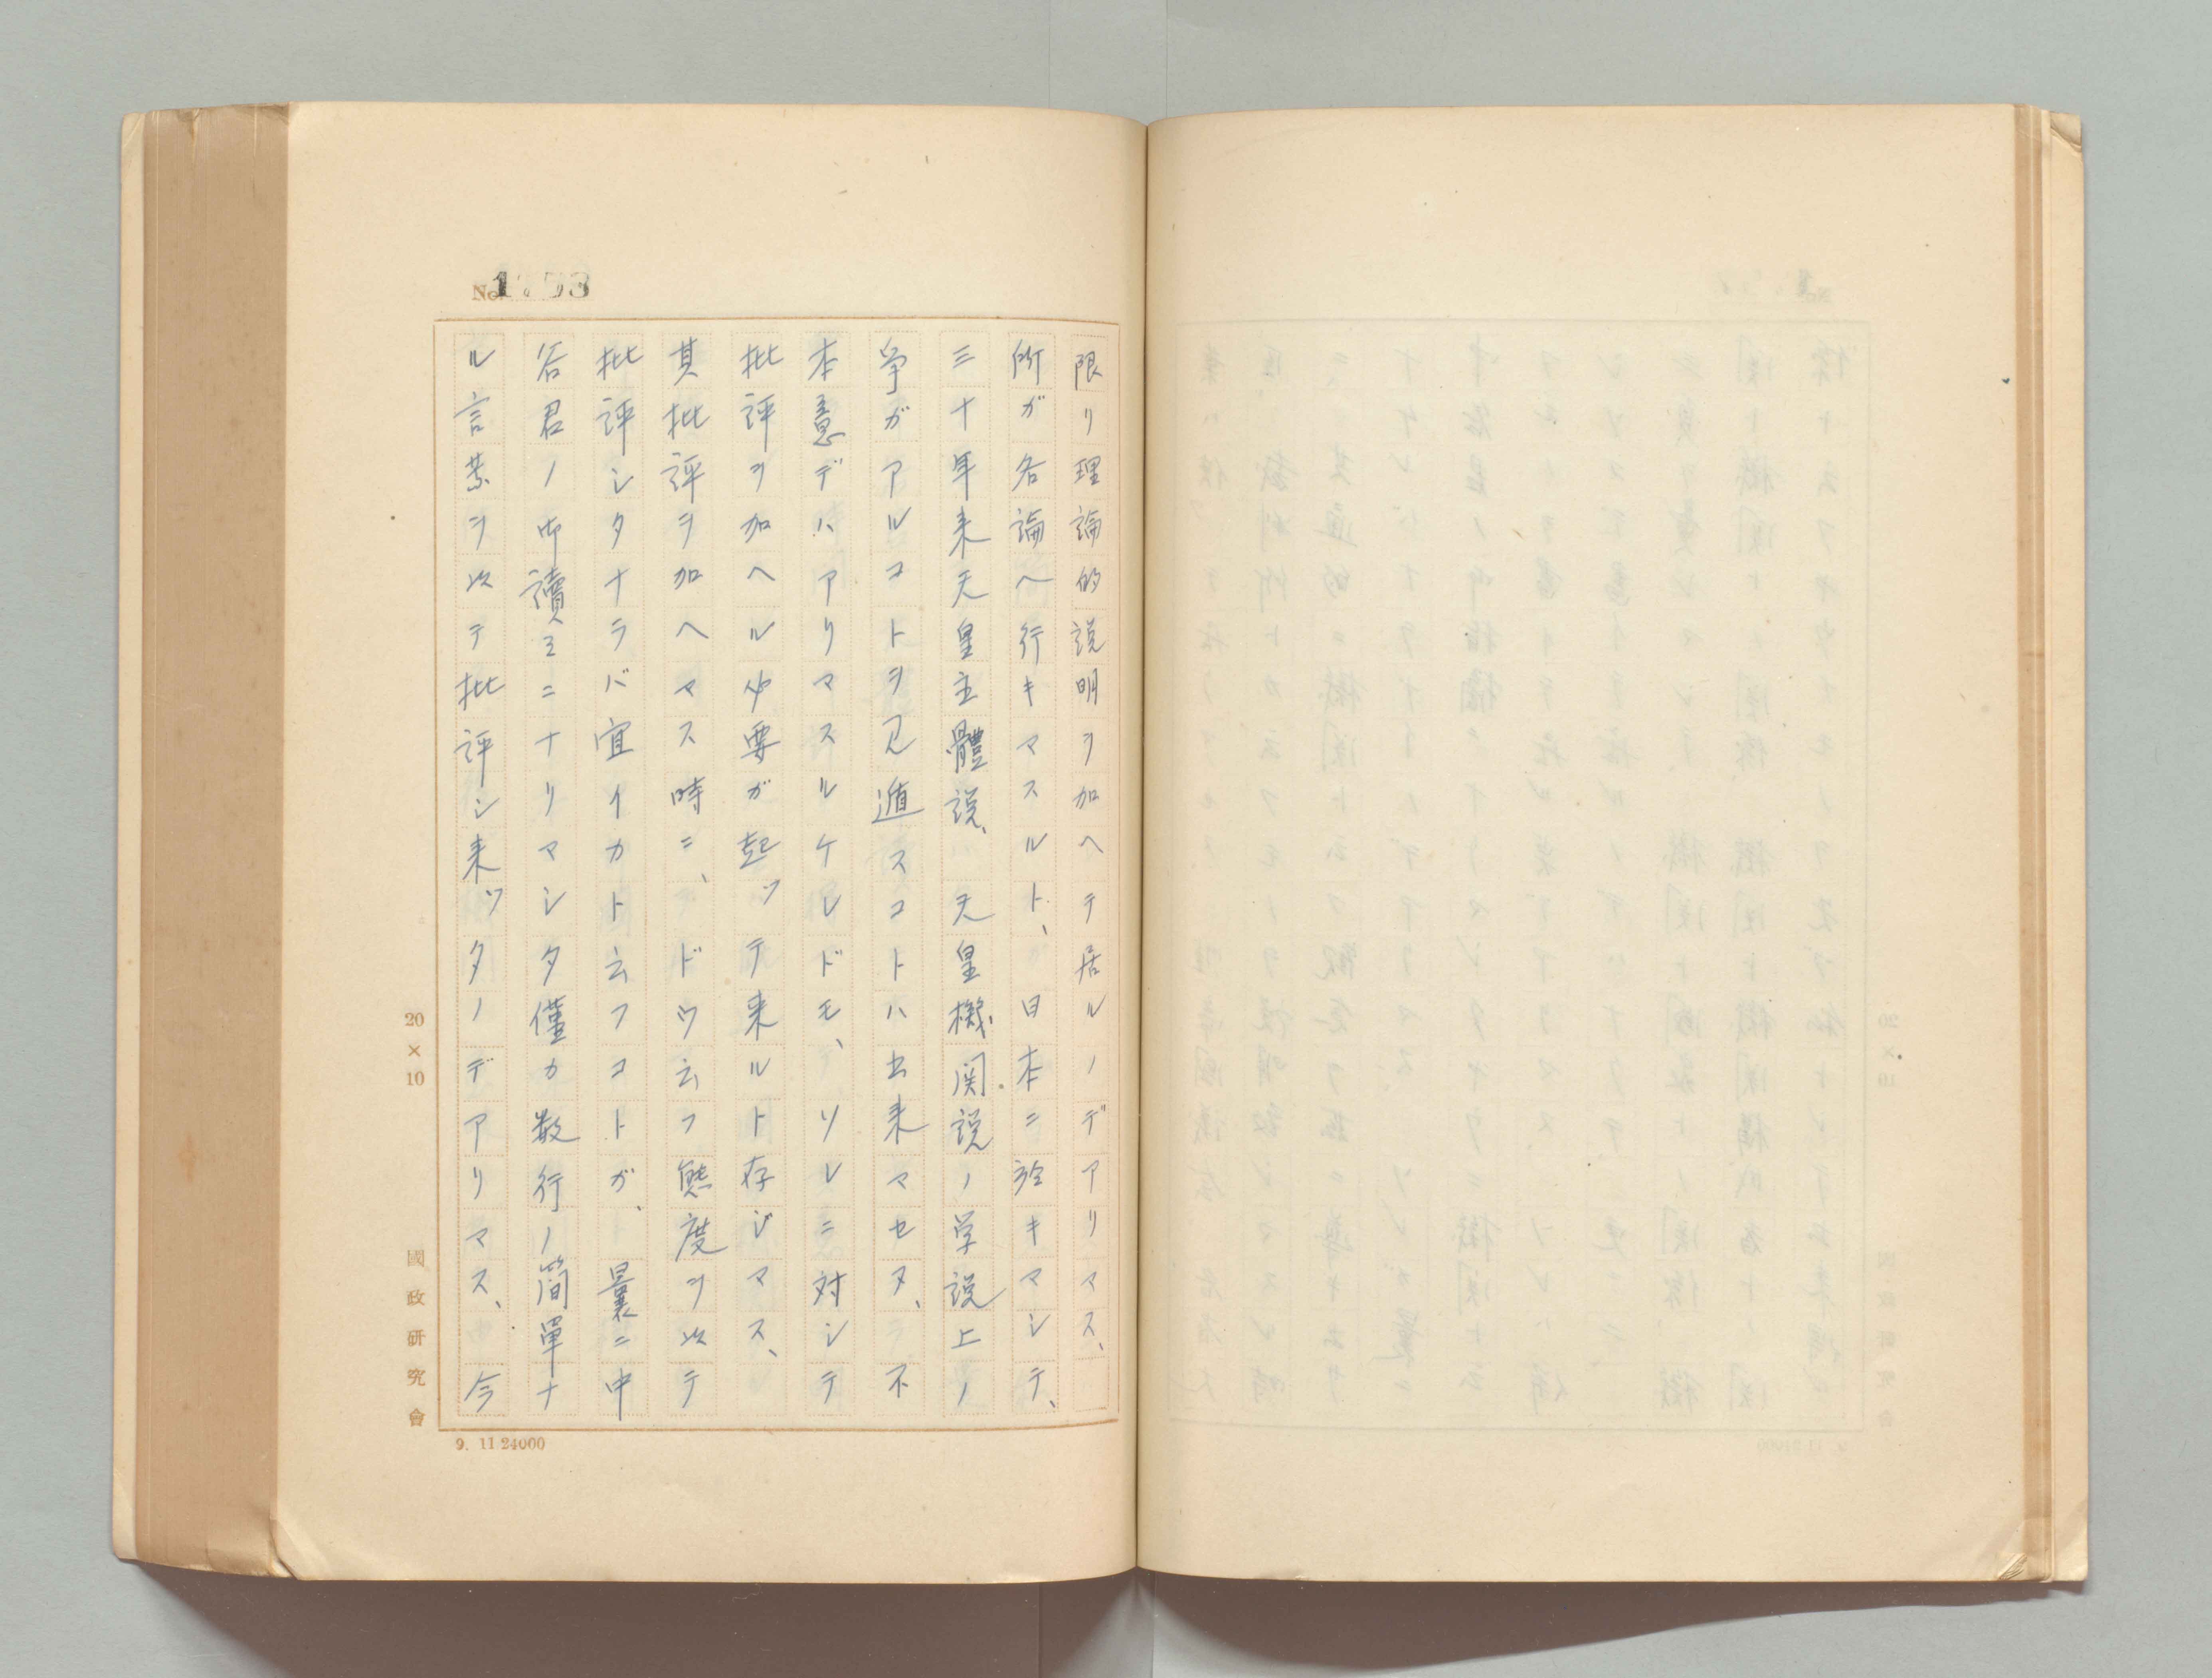 No. 1753
限リ理論的説明ヲ加ヘテ居ルノデアリマス、
所ガ各論ヘ行キマスルト、日本ニ於キマシテ、
三十年来天皇主體説、天皇機関説ノ学説上ノ
争ガアルコトヲ見遁スコトハ出来マセヌ、不
本意デハアリマスルケレドモ、ソレニ対シテ
批評ヲ加ヘル必要ガ起ツテ来ルト存ジマス、
其批評ヲ加ヘマス時ニ、ドウ云フ態度ヲ以テ
批評シタナラバ宜イカト云フコトガ、曩ニ中
谷君ノ御讀ミニナリマシタ僅カ数行ノ簡單ナ
ル言葉ヲ以テ批評シ来ツタノデアリマス、今
20×10
國政研究會
9. 11 24000